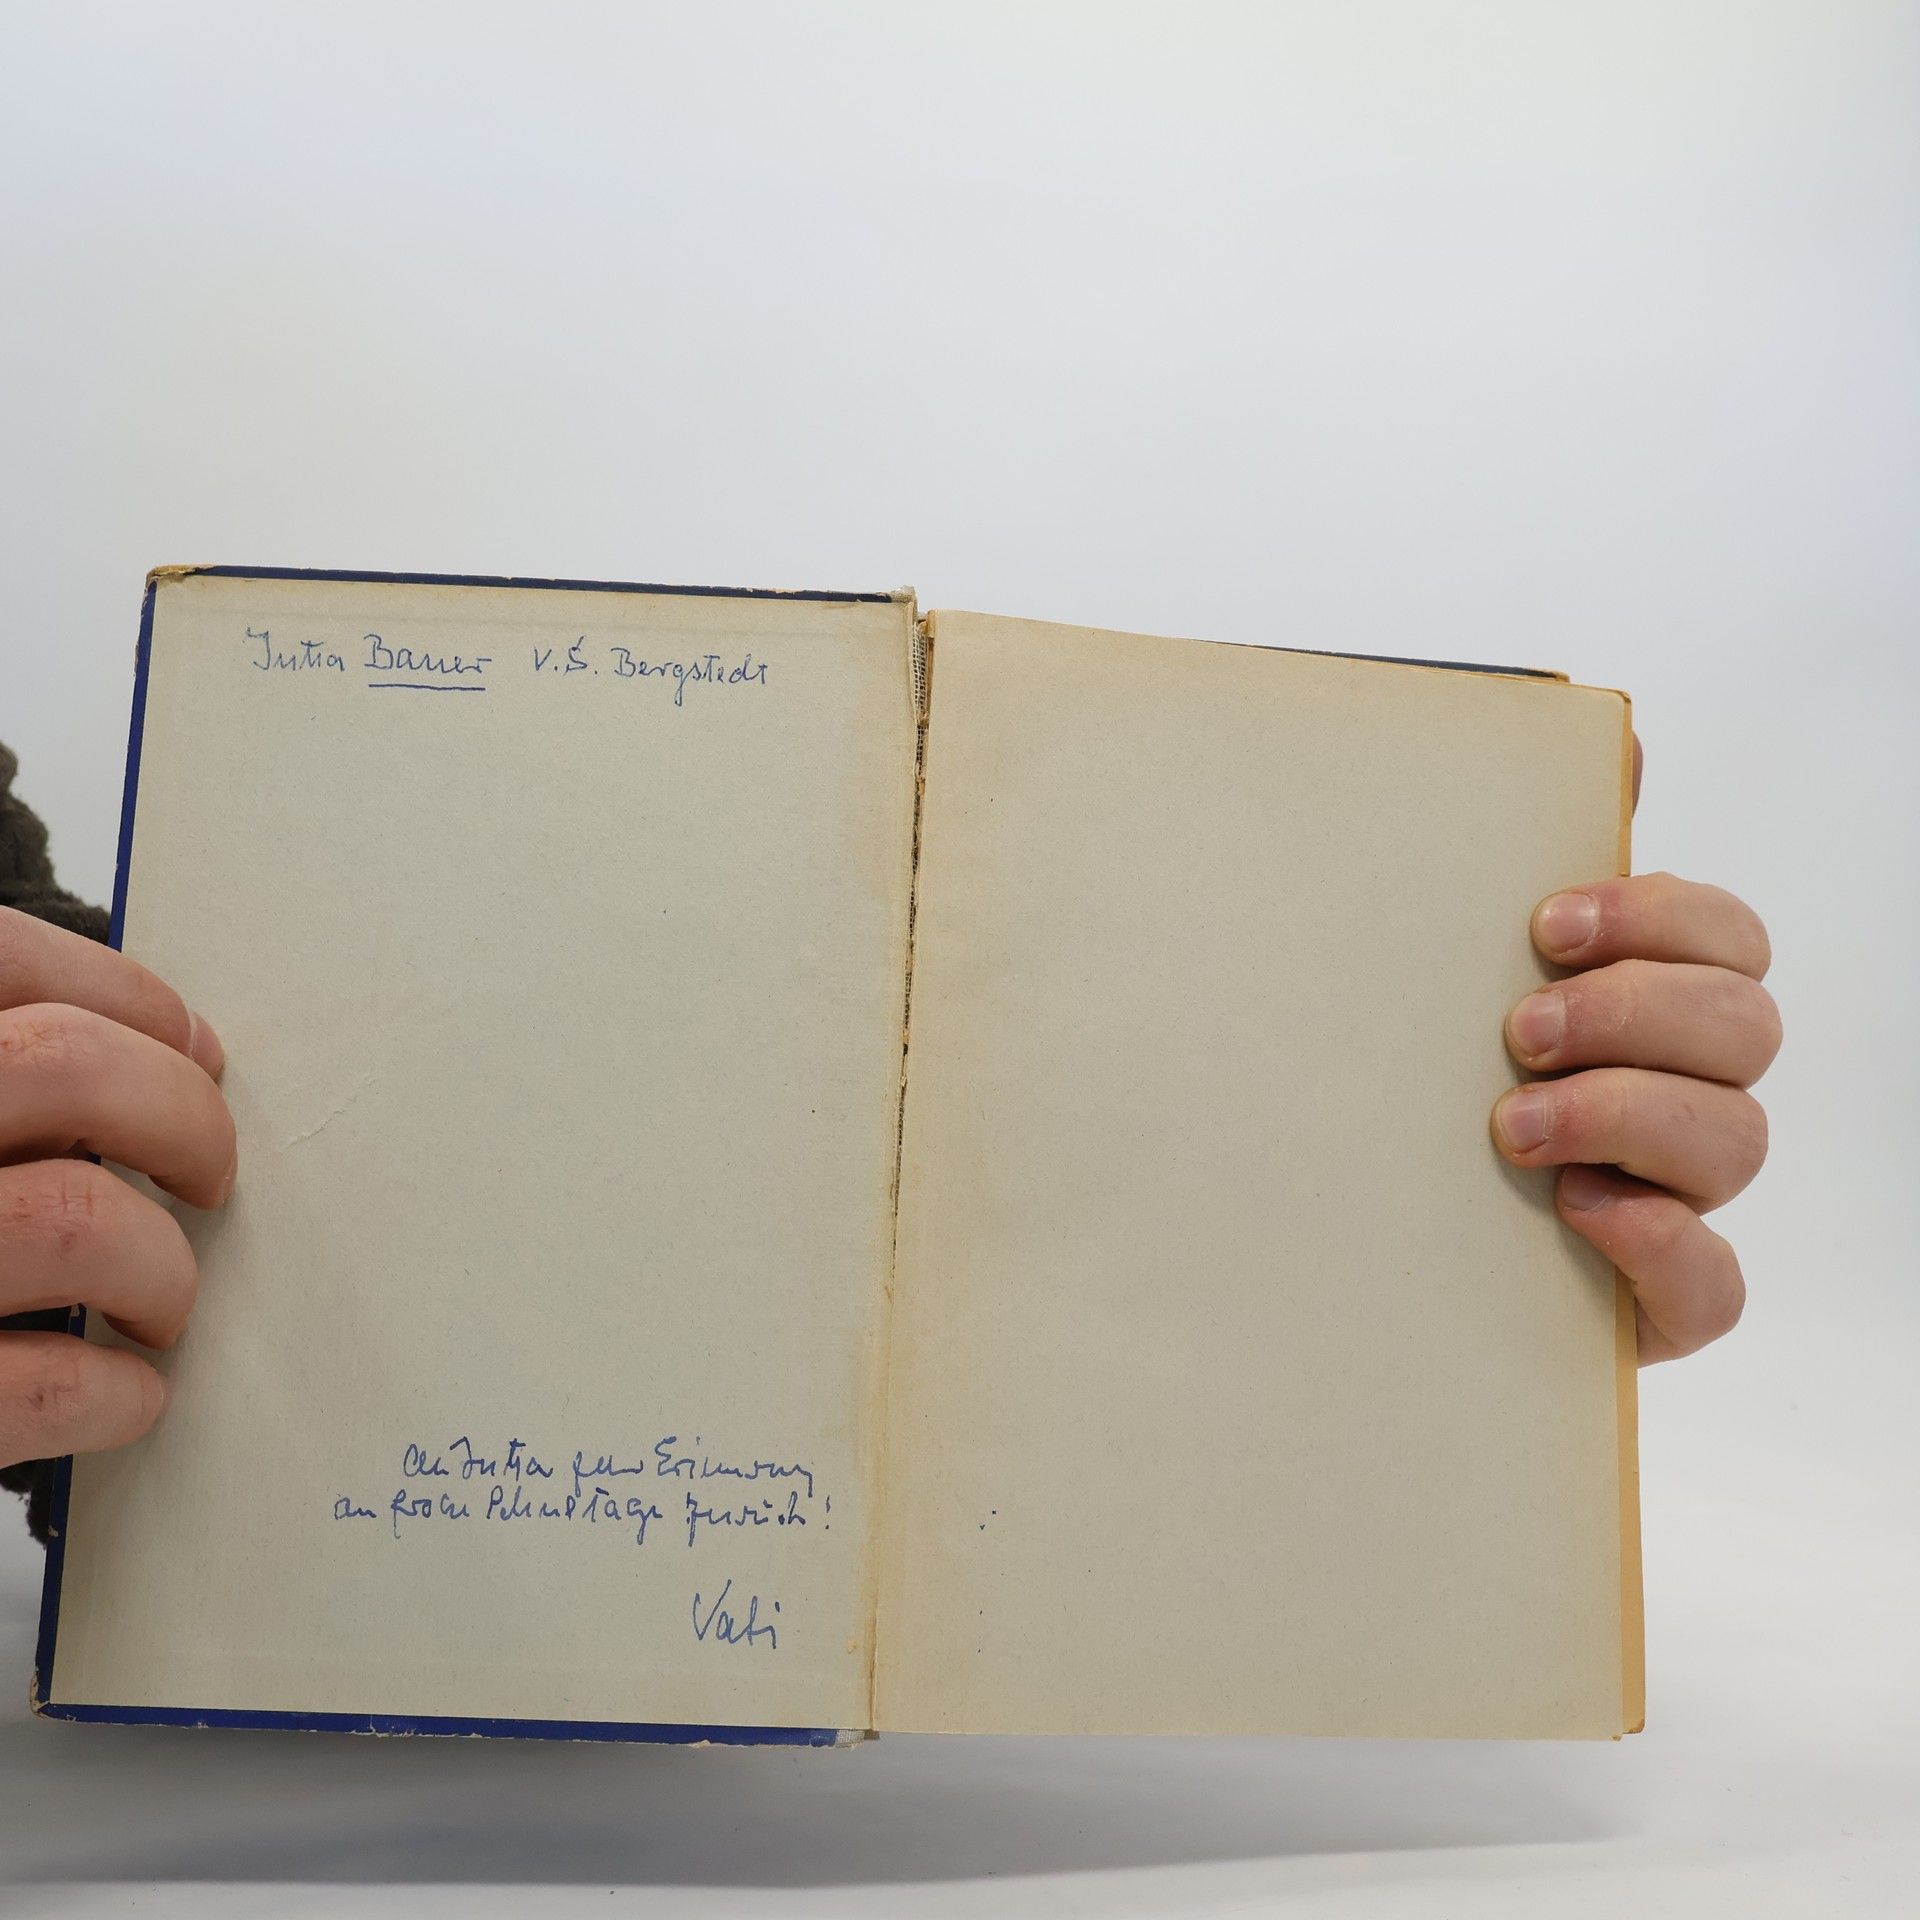 Jutta Bauer V.S. Bergstedt
An Jutta zur Erinnerung
an frohe Schultage zurück!
Vati